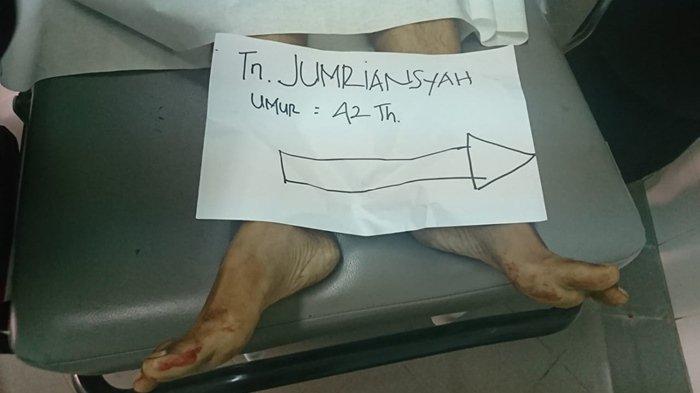 Tn. JUMRIANSYAH
UMUR = 42 Th.